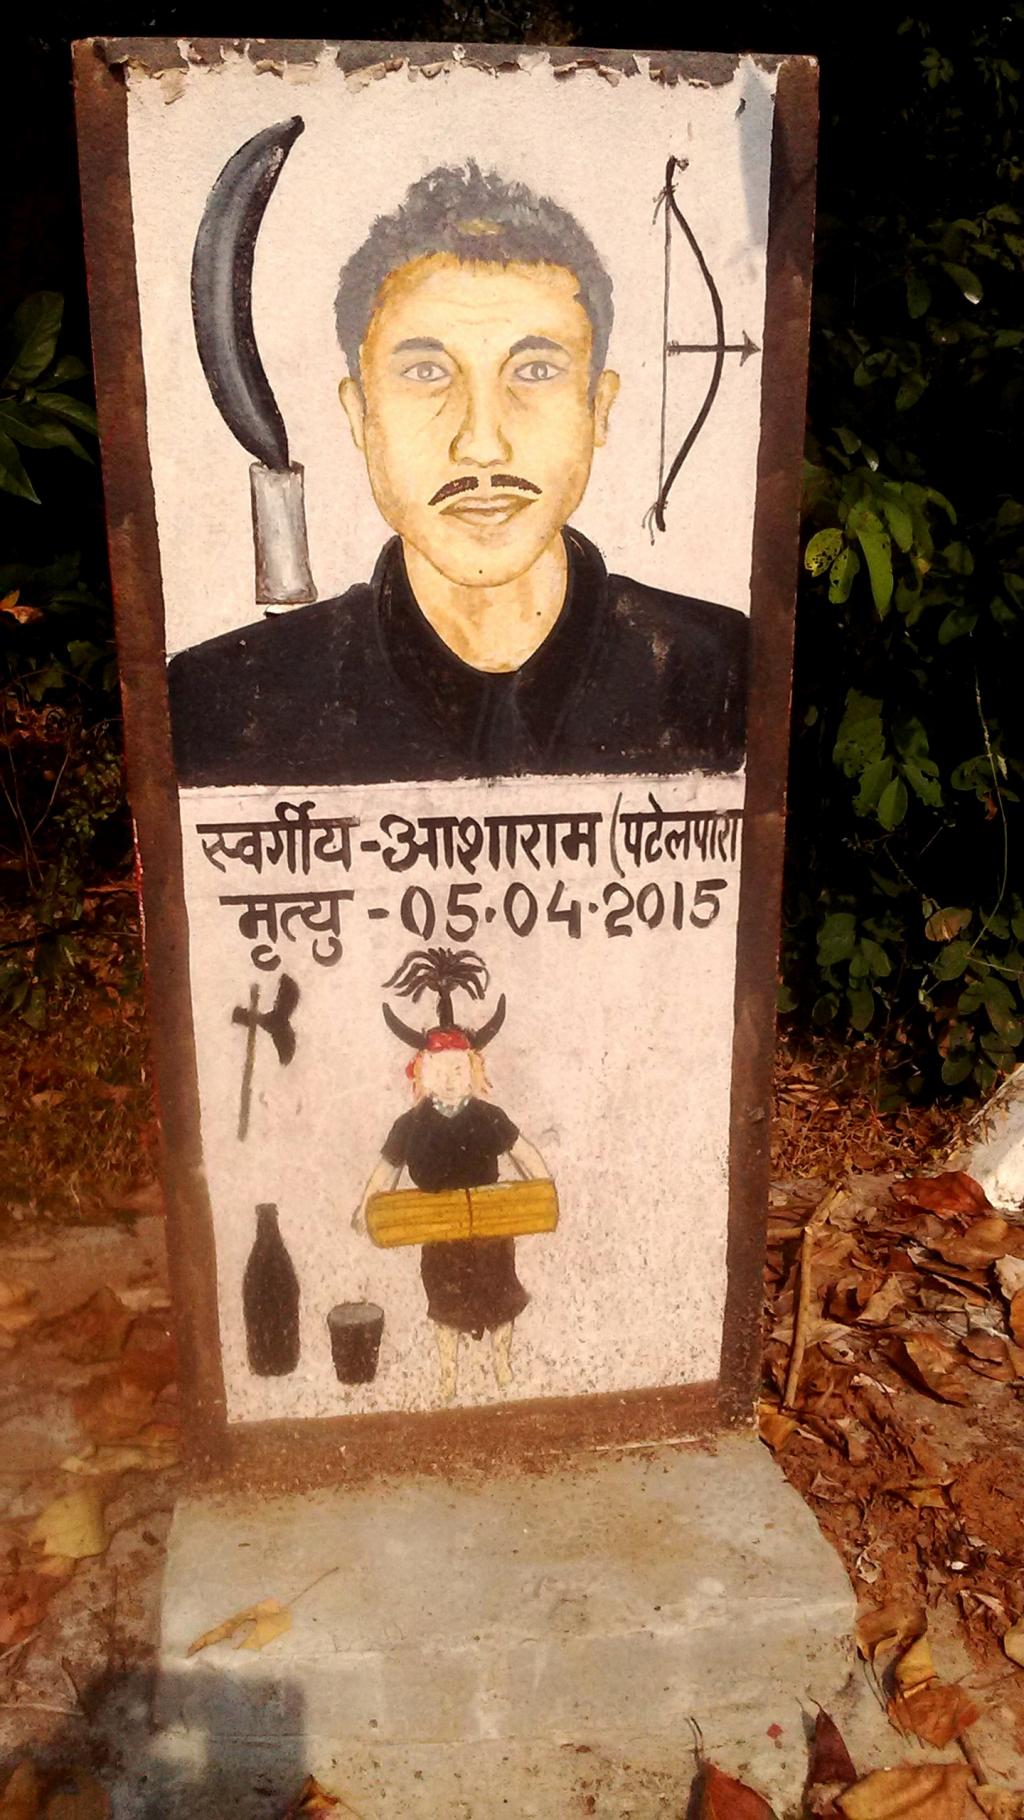 स्वर्गीय-आशाराम (पटेलपारा
मृत्यु - 05.04.2015